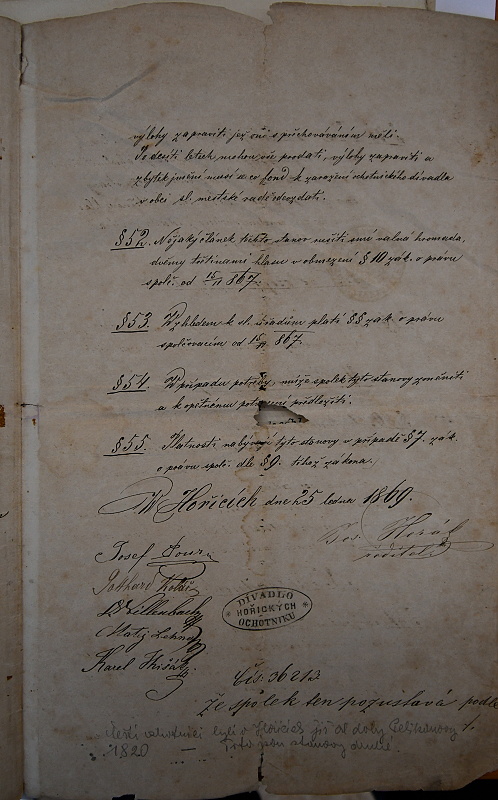 výlohy zapraviti jež oně s přechováváním měli.
Po desíti letech mohou vše prodati, výlohy zapraviti a
zbytek jmění musí se co fond k zaražení ochotnického divadla
v obci sl. městské radě odevzdati.
§ 52. Nějaký článek těchto stanov rušiti smí valná hromada,
dvěmy třetinami hlasů v obmezení § 10 zák. o právu
spolč. od 15/11 867.
§ 53. Vzhledem k sl. úřadům platí §§ zák. o právu
spolčovacím od 15/11 867.
§ 54. V případu potřeby, může spolek tyto stanovy změniti
a k opětnému potvrzení předložiti.
§ 55. Platnosti nabývají tyto stanovy v případě § 7. zák.
o právu spolč. dle § 9. téhož zákona.
V Hořicích dne 25 ledna 1869.
Jos. Horák
ředitel
Josef
Gothard
Matěj
Karel
DIVADLO
HOŘICKÝCH
OCHOTNIKŮ
Čís. 36213
Že spolek ten pozůstává podle
čeští ochotníci byli v Hořicích již od doby Pelikánovy
1820 — Toto jsou stanovy druhé.